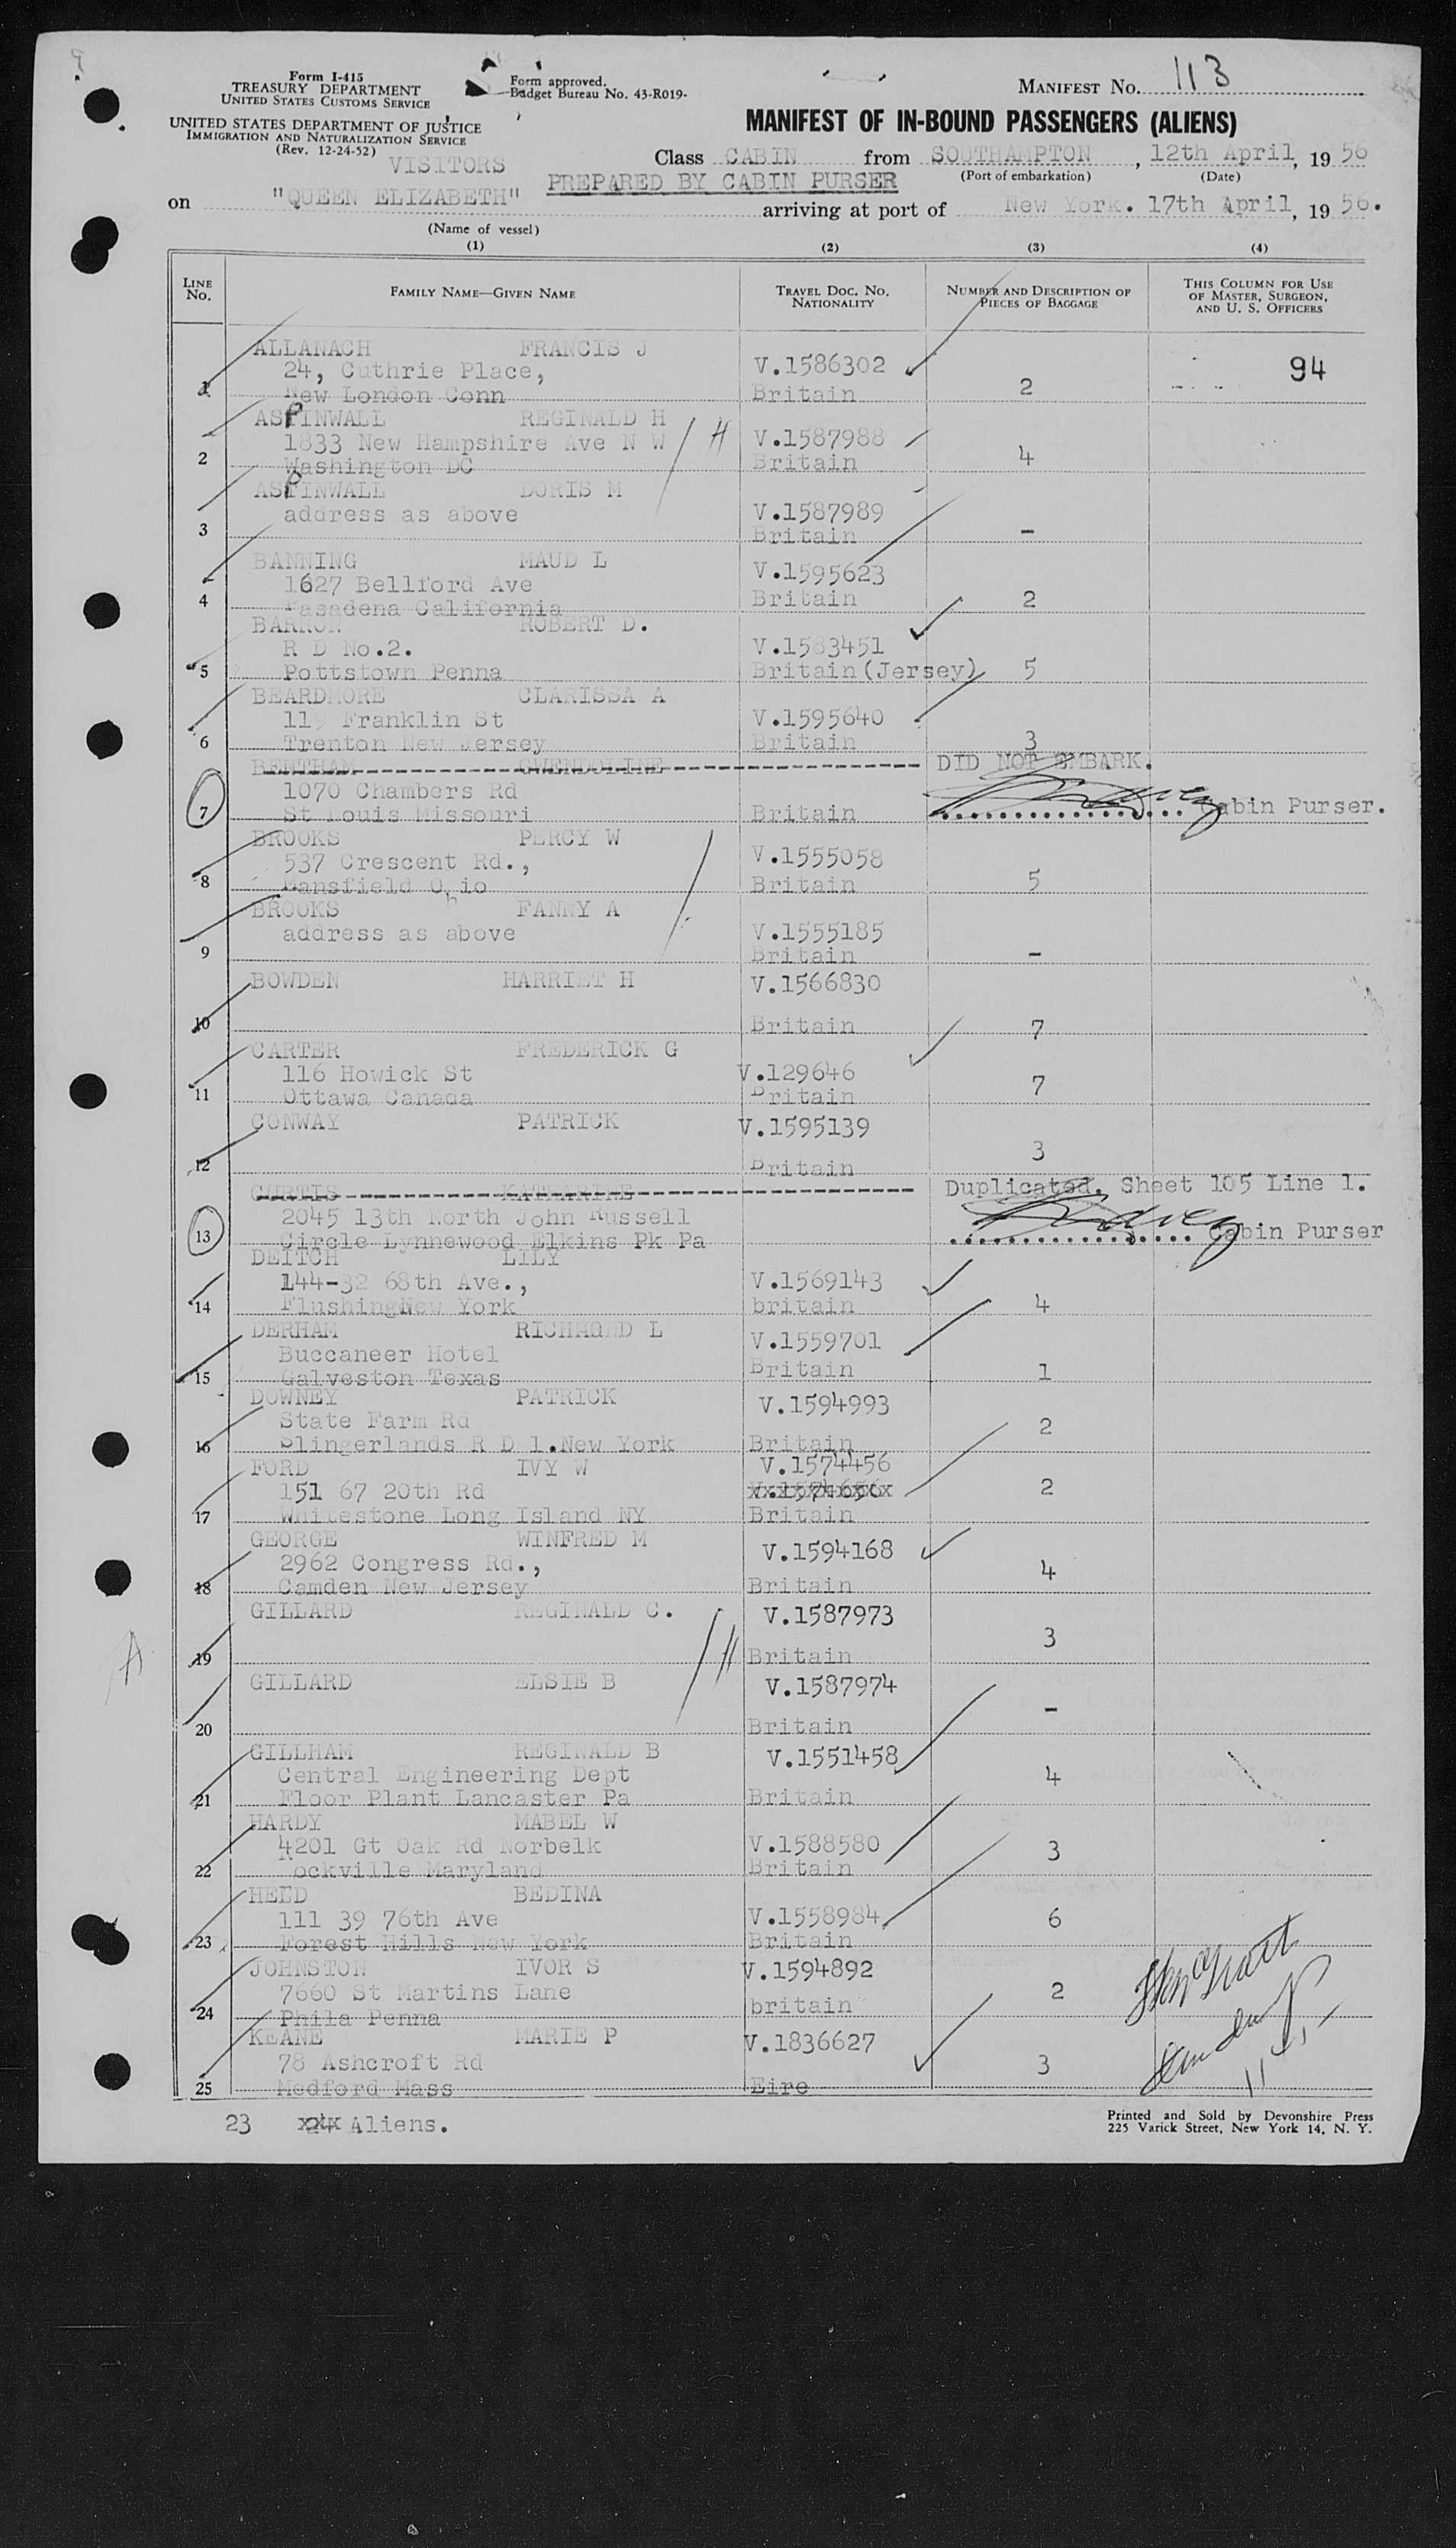 Form I-415
TREASURY DEPARTMENT
UNITED STATES CUSTOMS SERVICE
UNITED STATES DEPARTMENT OF JUSTICE
IMMIGRATION AND NATURALIZATION SERVICE
(Rev. 12-24-52)
VISITORS
Form approved.
Budget Bureau No. 43-R019-
MANIFEST NO. 113
MANIFEST OF IN-BOUND PASSENGERS (ALIENS)
Class CABIN from SOUTHAMPTON, 12th April, 19 56
(Port of embarkation) (Date)
PREPARED BY CABIN PURSER
on "QUEEN ELIZABETH" arriving at port of New York. 17th April, 19 56.
(Name of vessel)
(1) (2) (3) (4)
LINE NO. FAMILY NAME—GIVEN NAME TRAVEL DOC. NO. NATIONALITY NUMBER AND DESCRIPTION OF PIECES OF BAGGAGE THIS COLUMN FOR USE OF MASTER, SURGEON, AND U. S. OFFICERS
ALLANACH FRANCIS J
24, Guthrie Place, V.1586302 94
1 New London Conn Britain 2
ASPINWALL REGINALD H
1833 New Hampshire Ave N W H V.1587988
2 Washington DC Britain 4
ASPINWALL DORIS M
address as above V.1587989
3 Britain -
BANNING MAUD L
1627 Bellford Ave V.1595623
4 Pasadena California Britain 2
BARRON ROBERT D.
R D No.2. V.1583451
5 Pottstown Penna Britain(Jersey) 5
BEARDMORE CLARISSA A
119 Franklin St V.1595640
6 Trenton New Jersey Britain 3
BENTHAM GWENDOLINE DID NOT EMBARK.
1070 Chambers Rd
7 St Louis Missouri Britain Cabin Purser.
BROOKS PERCY W
537 Crescent Rd., V.1555058
8 Mansfield Ohio Britain 5
BROOKS FANNY A
address as above V.1555185
9 Britain -
BOWDEN HARRIET H V.1566830
10 Britain 7
CARTER FREDERICK G
116 Howick St V.129646
11 Ottawa Canada Britain 7
CONWAY PATRICK V.1595139
12 Britain 3
CURTIS KATHARINE Duplicated. Sheet 105 Line 1.
2045 13th North John Russell
13 Circle Lynnewood Elkins Pk Pa Cabin Purser
DEITCH LILY
144-32 68th Ave., V.1569143
14 FlushingNew York britain 4
DERHAM RICHMOND L V.1559701
Buccaneer Hotel
15 Galveston Texas Britain 1
DOWNEY PATRICK V.1594993
State Farm Rd 2
16 Slingerlands R D 1.New York Britain
FORD IVY W V.1574456
151 67 20th Rd 2
17 Whitestone Long Island NY Britain
GEORGE WINFRED M V.1594168
2962 Congress Rd., 4
18 Camden New Jersey Britain
GILLARD REGINALD C. V.1587973
19 Britain 3
GILLARD ELSIE B V.1587974
20 Britain -
GILLHAM REGINALD B V.1551458
Central Engineering Dept 4
21 Floor Plant Lancaster Pa Britain
HARDY MABEL W
4201 Gt Oak Rd Norbelk V.1588580 3
22 ockville Maryland Britain
HEED BEDINA
111 39 76th Ave V.1558984 6
23 Forest Hills New York Britain
JOHNSTON IVOR S V.1594892
7660 St Martins Lane 2
24 Phila Penna britain
KEANE MARIE P V.1836627
78 Ashcroft Rd 3
25 Medford Mass Eire
23 Aliens.
Printed and Sold by Devonshire Press
225 Varick Street, New York 14, N. Y.